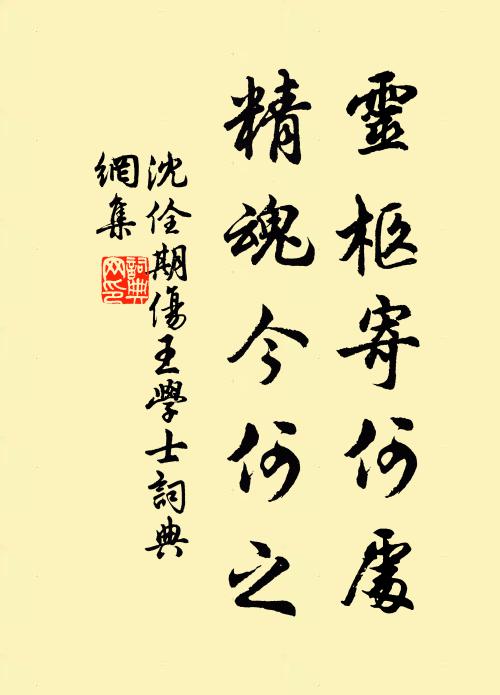 靈柩寄何處
精魂今何之
沈佺期傷王學士詞典
網集
詞典網印